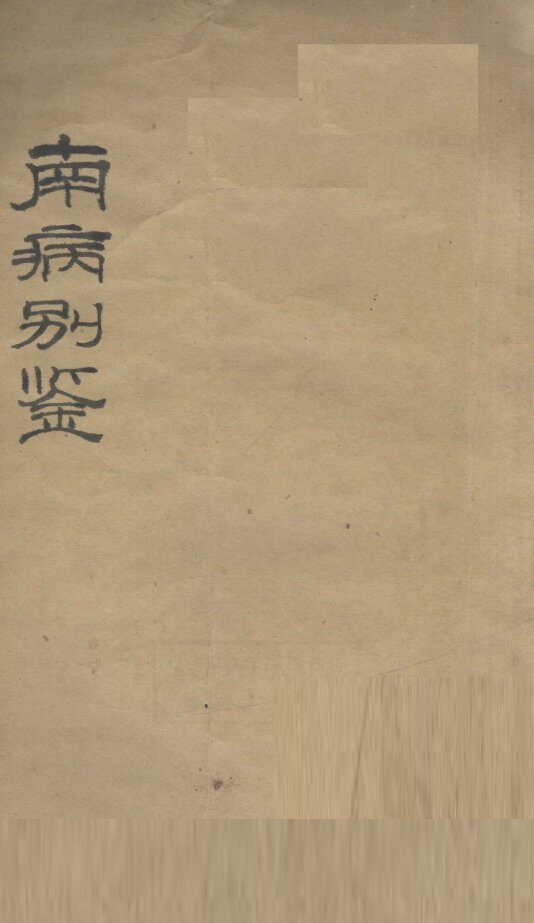 南病别鉴